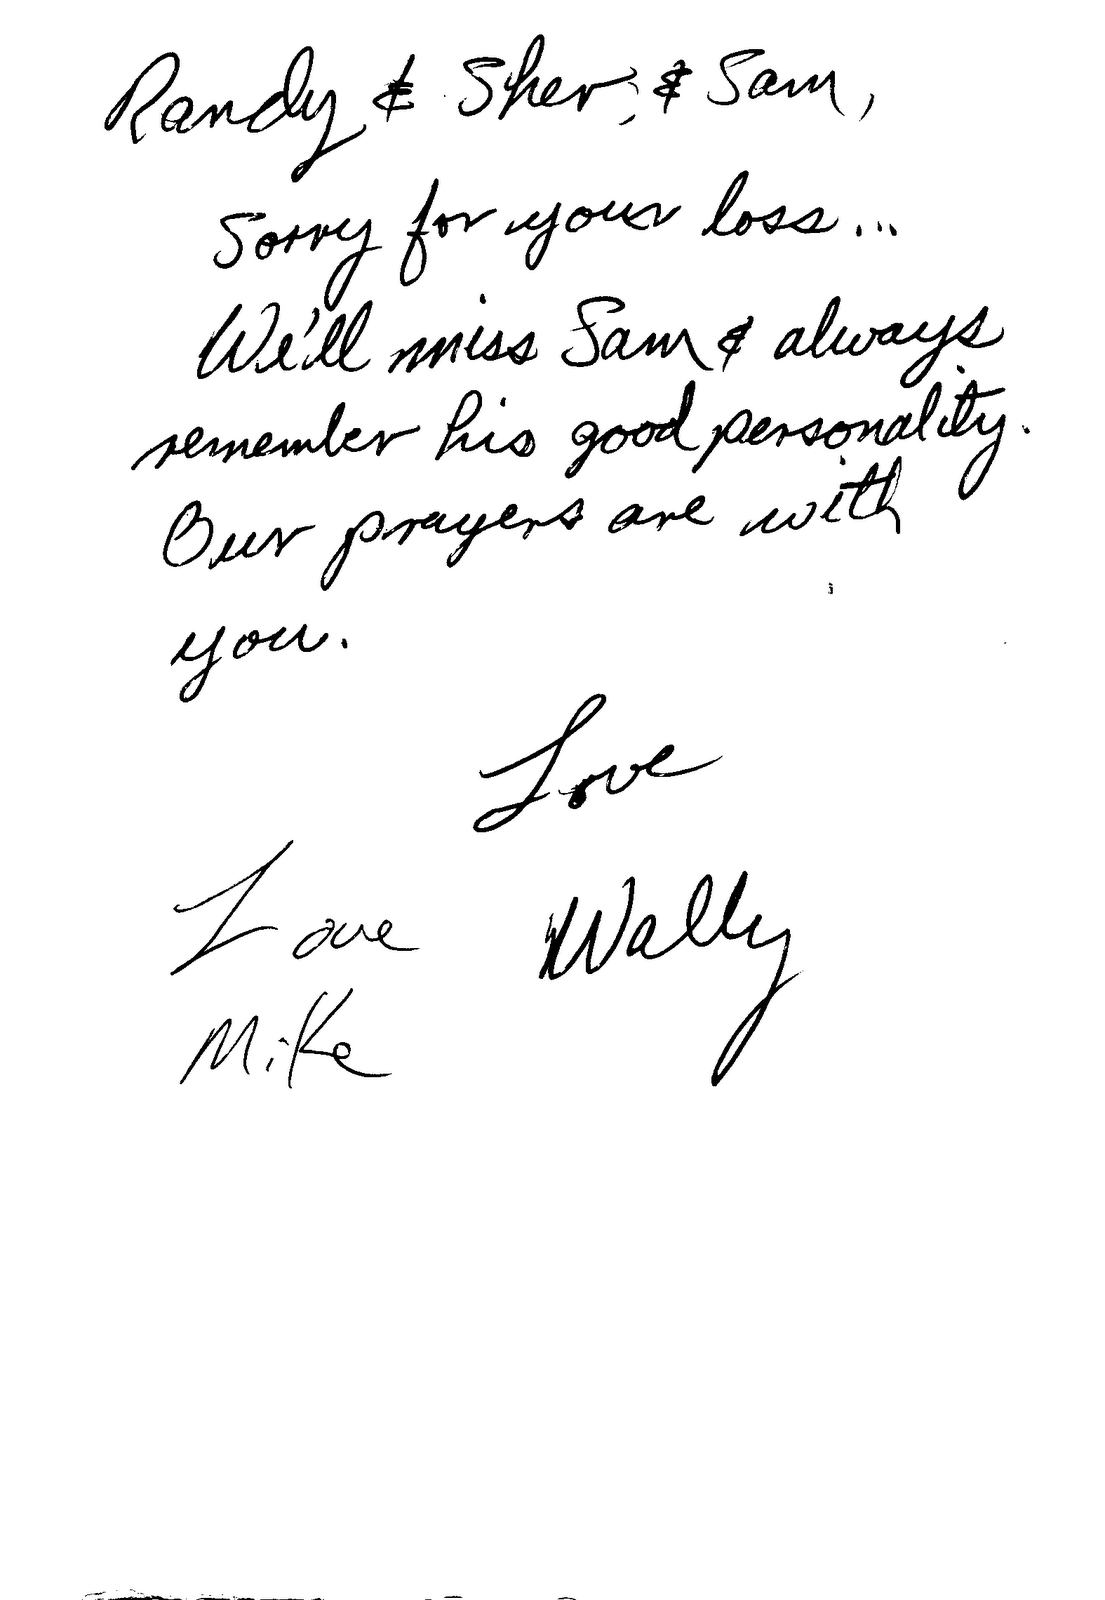 Randy & Sher, & Sam,
Sorry for your loss...
We'll miss Sam & always
remember his good personality.
Our prayers are with
you.
Love
Love Wally
Mike